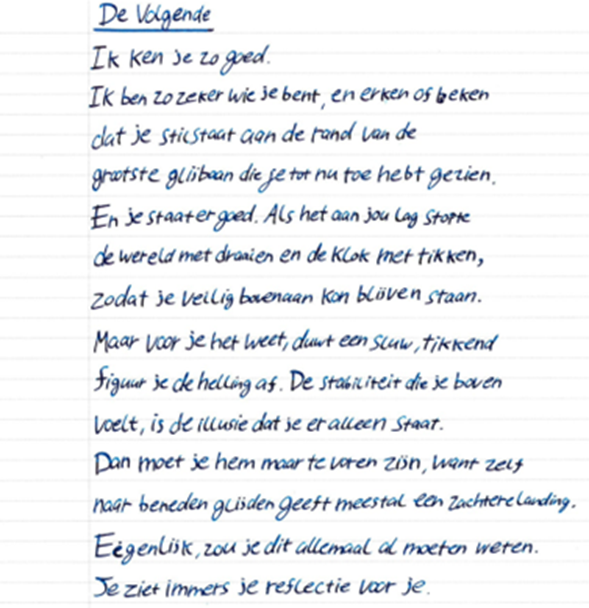 De Volgende
Ik ken je zo goed.
Ik ben zo zeker wie je bent, en erken of beken
dat je stilstaat aan de rand van de
grootste glijbaan die je tot nu toe hebt gezien.
En je staat er goed. Als het aan jou lag stopte
de wereld met draaien en de klok met tikken,
zodat je veilig bovenaan kon blijven staan.
Maar voor je het weet, duwt een sluw, tikkend
figuur je de helling af. De stabiliteit die je boven
voelt, is de illusie dat je er alleen staat.
Dan moet je hem maar te voren zijn, want zelf
naar beneden glijden geeft meestal een zachtere landing.
Eigenlijk, zou je dit allemaal al moeten weten.
Je ziet immers je reflectie voor je.